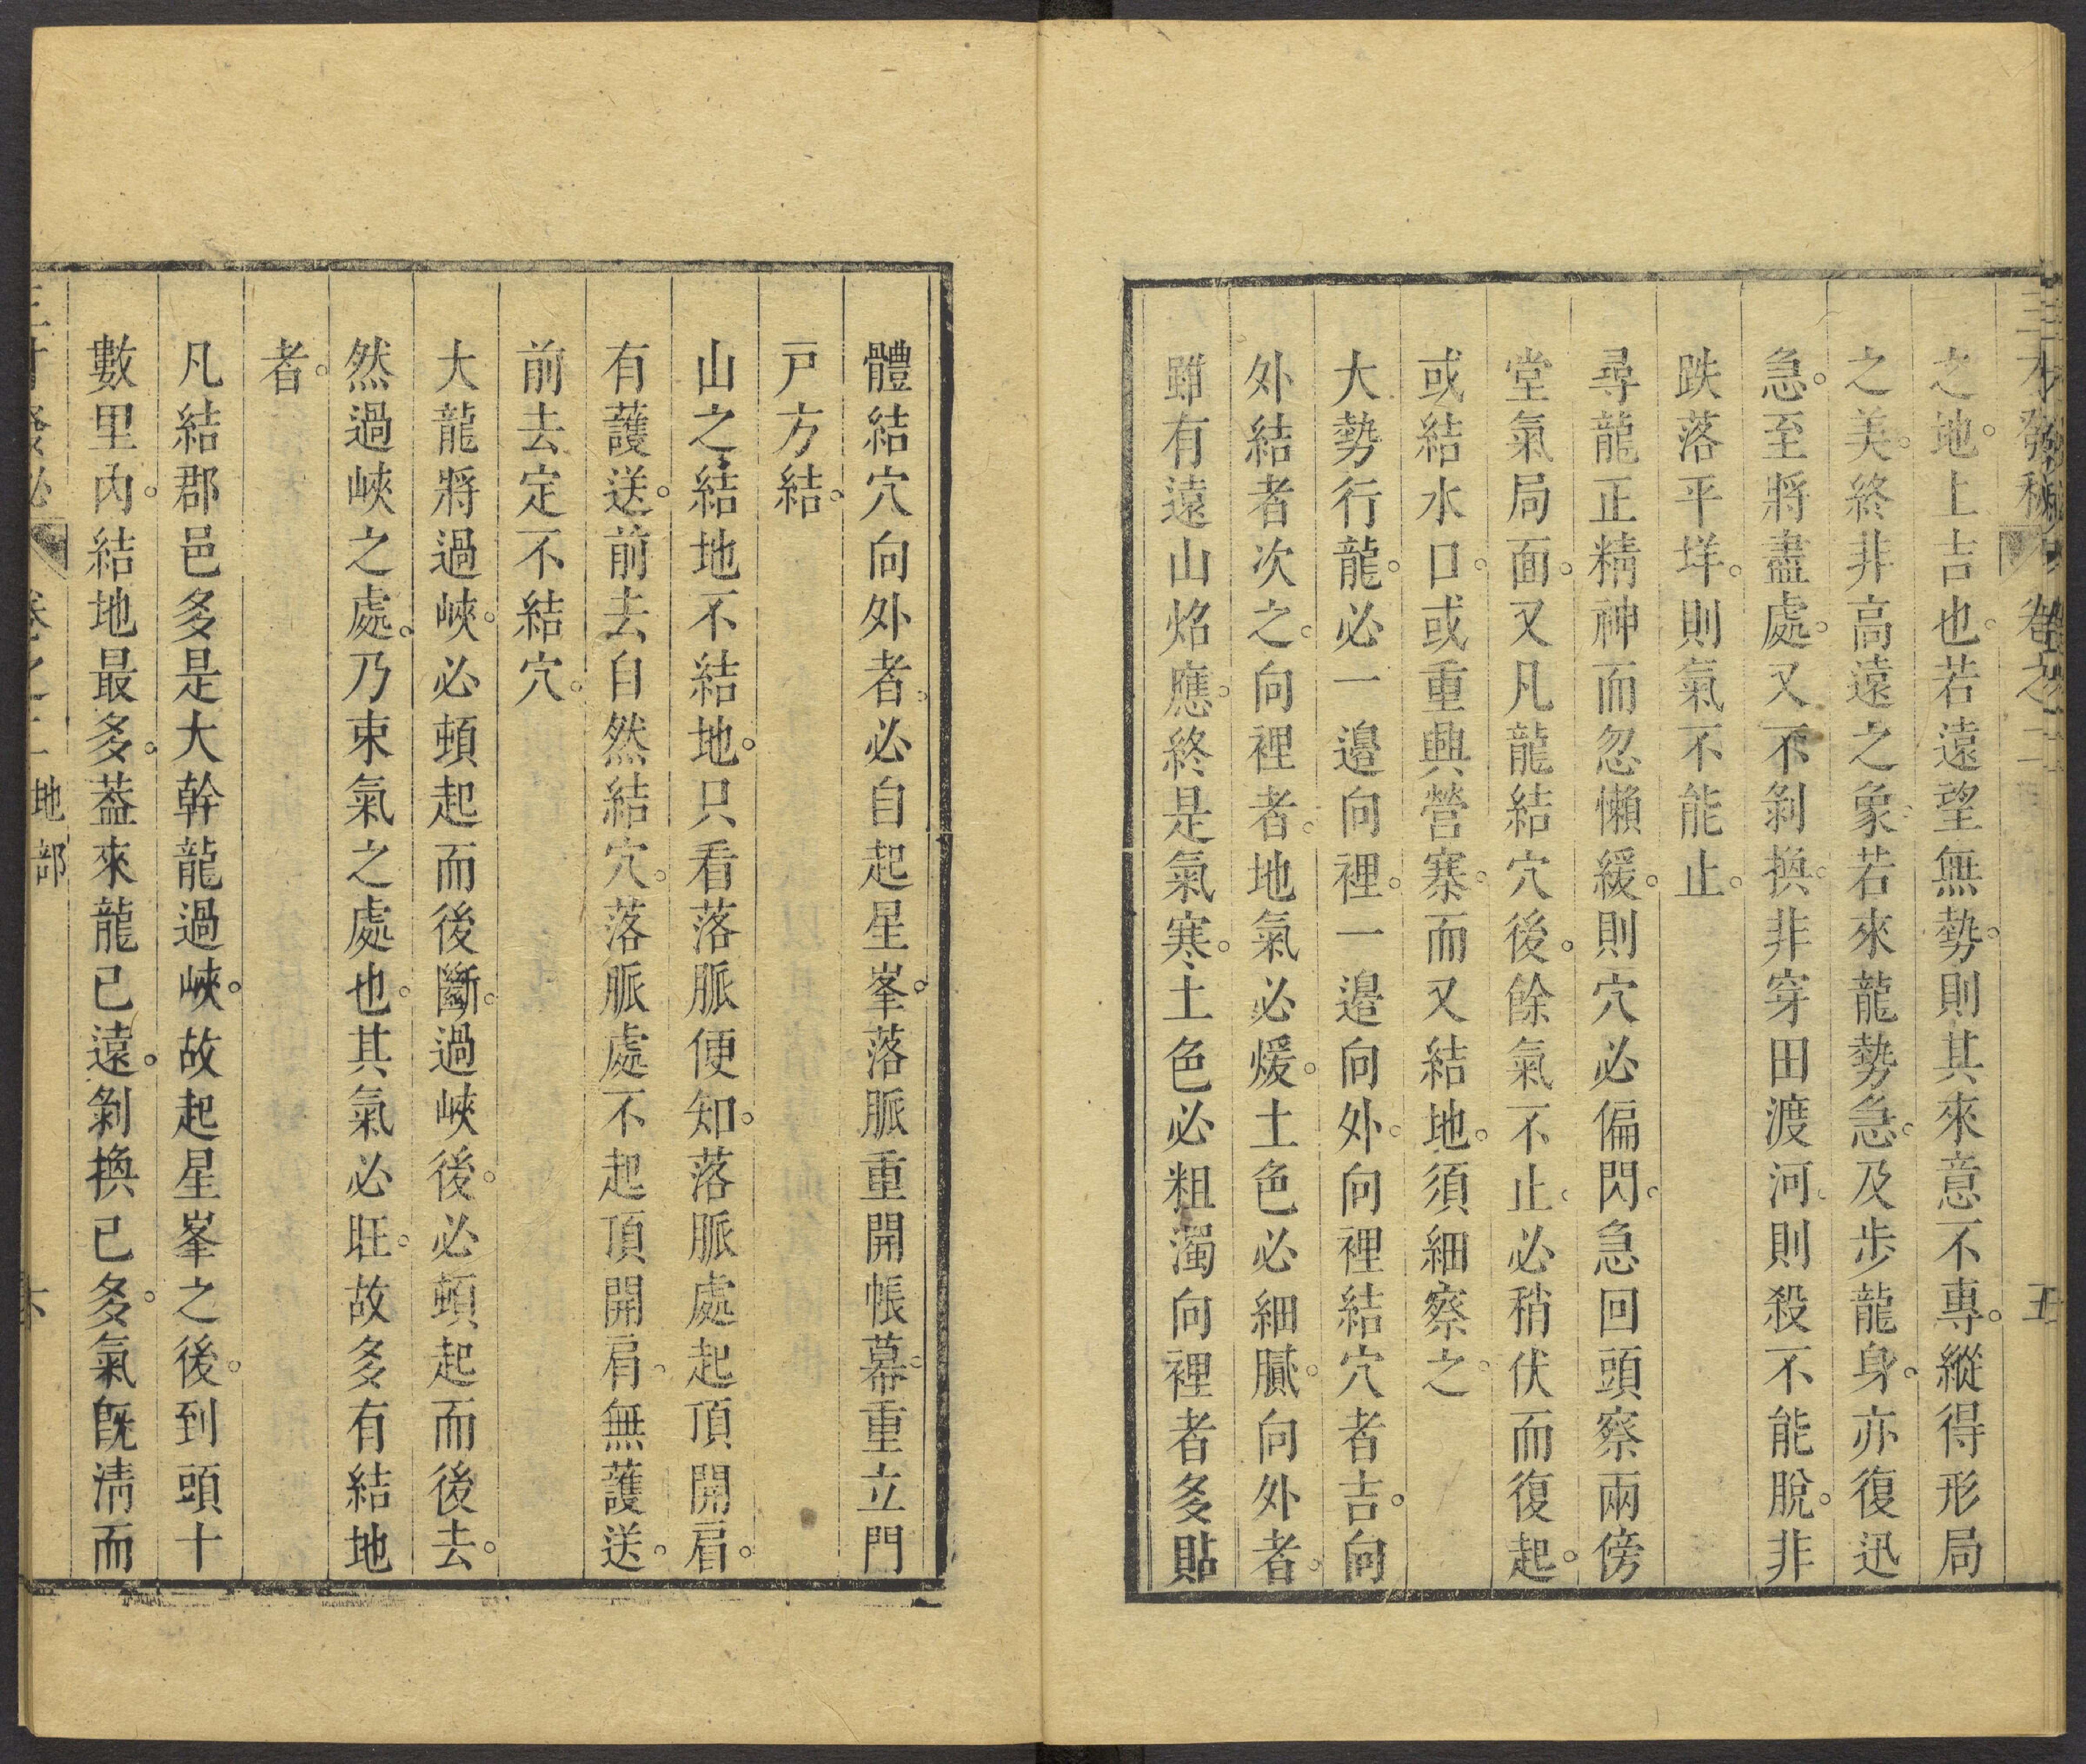 三才發秘 卷之二 五
之地。上吉也。若遠望無勢。則其來意不專。縱得形局
之美。終非高遠之象。若來龍勢急。及步龍身。亦復迅
急。至將盡處。又不剝換。非穿田渡河。則殺不能脫。非
跌落平垟。則氣不能止。
尋龍正精神而忽懶緩。則穴必偏閃。急回頭察兩傍
堂氣局面。又凡龍結穴後。餘氣不止。必稍伏而復起。
或結水口。或重興營寨。而又結地。須細察之。
大勢行龍。必一邉向裡。一邉向外。向裡結穴者吉。向
外結者次之。向裡者。地氣必煖。土色必細膩。向外者。
雖有遠山焰應。終是氣寒。土色必粗濁向裡者多貼
體結穴向外者。必自起星峯。落脈重開帳幕。重立門
戸方結。
山之結地不結地。只看落脈便知。落脈處起頂開肩。
有護送。前去自然結穴。落脈處不起頂開肩。無護送。
前去定不結穴。
大龍將過峽。必頓起而後斷。過峽後。必頓起而後去。
然過峽之處。乃束氣之處也。其氣必旺。故多有結地
者。
凡結郡邑多是大幹龍過峽。故起星峯之後。到頭十
數里內。結地最多。葢來龍已遠。剝換已多。氣旣淸而
三才發秘 卷之二 地部 六